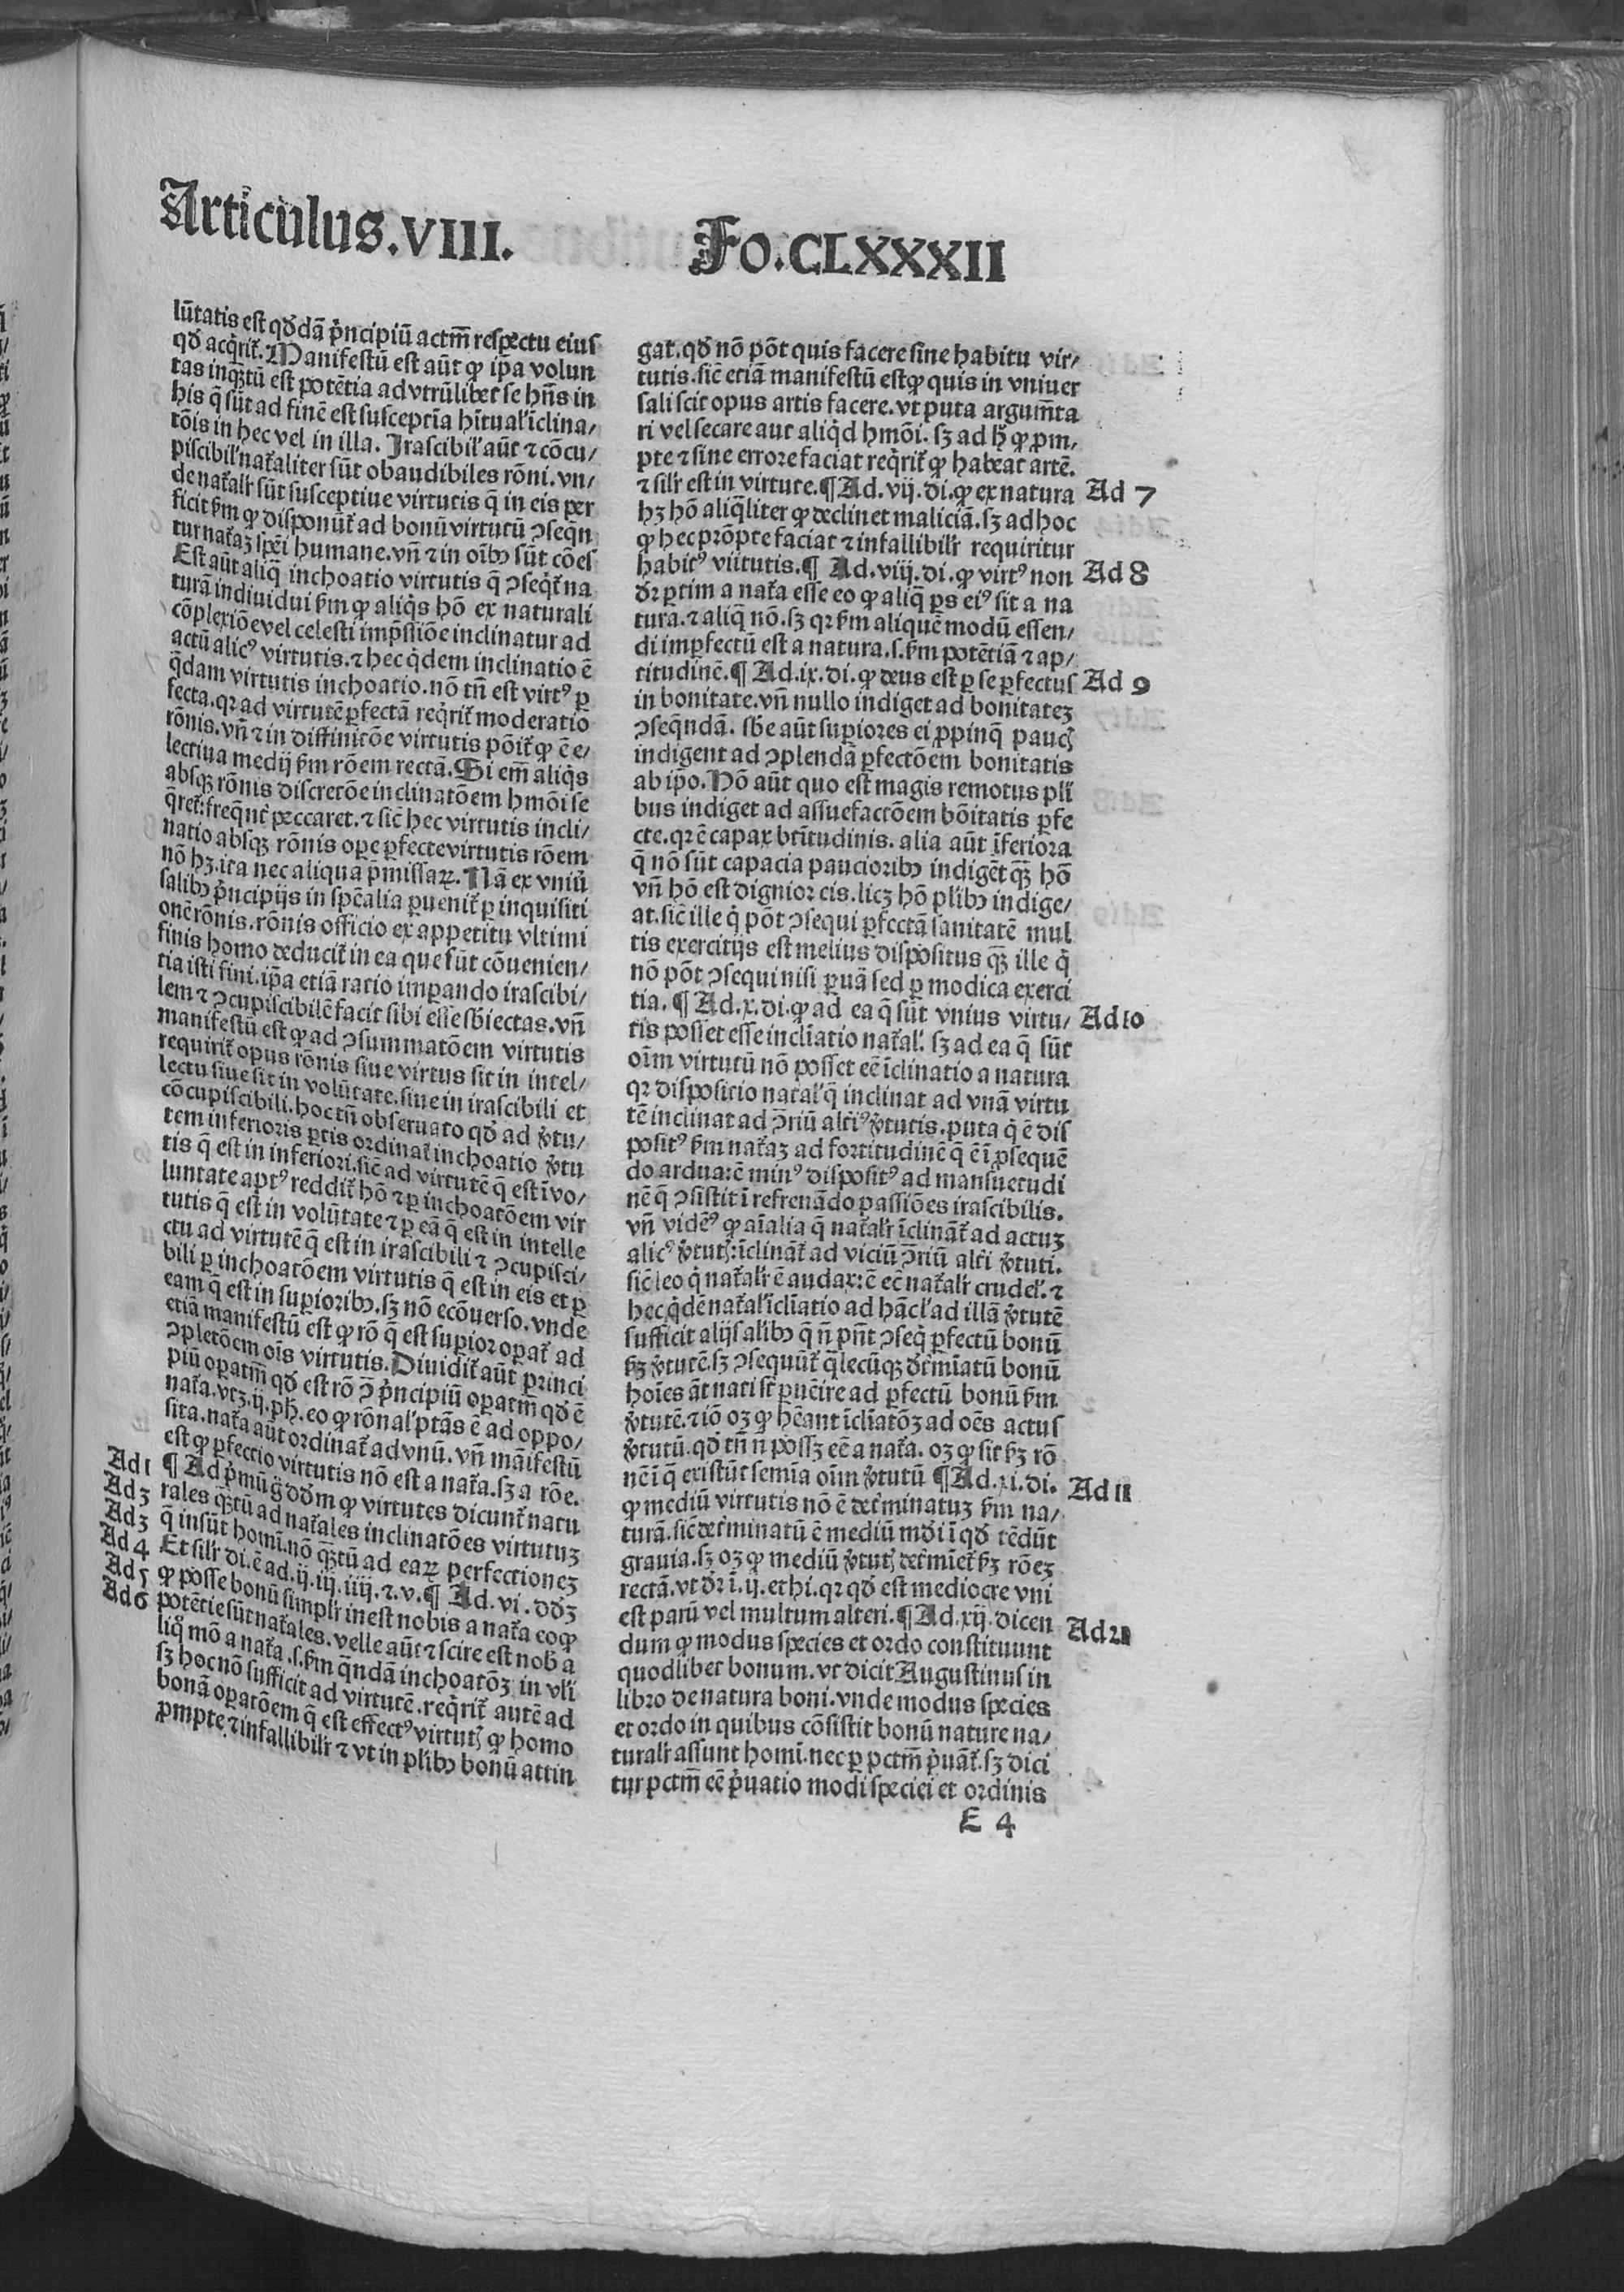 Articulus.VIII.
Fo.CLXXXII
lūtatis est qđdā pͥncipiū actm̄ respectu eius
qđ acqͥriť. Manifestū est aūt ꝙ ip̄a volun
tas inqͣꝫtū est potētia ad vtrūlibet se hn̄s in
his q̄ sūt ad finē est susceptīa hītual' īclina/
tōis in hec vel in illa. Irascibil' aūt ⁊ cōcu/
piscibil' naťaliter sūt obaudibiles rōni. vn/
de naťalr̄ sūt susceptiue virtutis q̄ in eis per
ficit ẜm ꝙ disponūť ad bonū virtutū ↄseq̄n
tur naťaꝫ spēi humane. vn̄ ⁊ in oībꝫ sūt cōes
Est aūt aliq̄ inchoatio virtutis q̄ ↄseqͥť na
turā indiuidui ẜm ꝙ aliqͥs hō ex naturali
cōplexiōe vel celesti imp̄ssiōe inclinatur ad
actū alicꝰ virtutis. ⁊ hec qͥdem inclinatio ē
q̄dam virtutis inchoatio. nō tn̄ est virtꝰ ꝑ
fecta. qꝛ ad virtutē ꝑfectā reqͥriť moderatio
rōnis. vn̄ ⁊ in diffinitōe virtutis pōiť ꝙ ē e/
lectiua medij ẜm rōem rectā. Si em̄ aliqͥs
absqꝫ rōnis discretōe inclinatōem hmōi se
q̄ret: freqn̄t̄ peccaret. ⁊ sic̄ hec virtutis incli/
natio absqꝫ rōnis ope ꝑfecte virtutis rōem
nō hꝫ. ita nec aliqua p̄missaꝝ. Nā ex vniu̓
salibꝫ pͥncipijs in spēalia ꝑueniť ꝑ inquisiti
onē rōnis. rōnis officio ex appetitu vltimi
finis homo deduciť in ea que sūt cōuenien/
tia isti fini. ip̄a etiā ratio imꝑando irascibi/
lem ⁊ ↄcupiscibilē facit sibi esse sb̄iectas. vn̄
manifestū est ꝙ ad ↄsummatōem virtutis
requiriť opus rōnis siue virtus sit in intel/
lectu siue sit in volūtate. siue in irascibili et
cōcupiscibili. hoc tn̄ obseruato qđ ad v̓tu/
tem inferioris ꝑtis ordinať inchoatio v̓tu
tis q̄ est in inferiori. sic̄ ad virtutē q̄ est ī vo/
luntate aptꝰ reddiť hō ⁊ ꝑ inchoatōem vir
tutis q̄ est in volūtate ⁊ ꝑ eā q̄ est in intelle
ctu ad virtutē q̄ est in irascibili ⁊ ↄcupisci/
bili ꝑ inchoatōem virtutis q̄ est in eis et ꝑ
eam q̄ est in suꝑioribꝫ. sꝫ nō ecōuerso. vnde
etiā manifestū est ꝙ rō q̄ est suꝑior oꝑať ad
ↄpletōem ois virtutis. Diuidiť aūt princi
piū oꝑatm̄ qđ est rō ↄ̄ pͥncipiū oꝑatm̄ qđ ē
naťa. vtꝫ. ij. pħ. eo ꝙ rōnal' ptās ē ad oppo/
sita. naťa aūt ordinať ad vnū. vn̄ māifestū
est ꝙ ꝑfectio virtutis nō est a naťa. sꝫ a rōe.
¶ Ad pͥmū g̊ dđm ꝙ virtutes dicunť natu
rales qͣꝫtū ad naťales inclinatōes virtutuꝫ
q̄ insūt homī. nō qͣꝫtū ad eaꝝ perfectionez
Et silr̄ di. ē ad. ij. iij. iiij. ⁊. v. ¶ Ad. vi. dđꝫ
ꝙ posse bonū simplr̄ inest nobis a naťa eo ꝙ
potētie sūt naťales. velle aūt ⁊ scire est nob̄ a
liqͦ mō a naťa .s. ẜm q̄ndā inchoatōꝫ in vl'i
sꝫ hoc nō sufficit ad virtutē. reqͥriť autē ad
bonā oꝑatōem q̄ est effectꝰ virtutꝭ ꝙ homo
ꝓmpte ⁊ infallibilr̄ ⁊ vt in pl̄ibꝫ bonū attin
Ad 1
Ad 3
Ad 3
Ad 4
Ad 5
Ad 6
gat. qđ nō pōt quis facere sine habitu vir/
tutis. sic̄ etiā manifestū est ꝙ quis in vniuer
sali scit opus artis facere. vt puta argum̄ta
ri vel secare aut aliqͥd hmōi. sꝫ ad ħ ꝙ ꝓm/
pte ⁊ sine errore faciat reqͥriť ꝙ habeat artē.
⁊ silr̄ est in virtute. ¶ Ad. vij. di. ꝙ ex natura
hꝫ hō aliq̄liter ꝙ declinet maliciā. sꝫ ad hoc
ꝙ hec prōpte faciat ⁊ infallibilr̄ requiritur
habitꝰ viitutis. ¶ Ad. viij. di. ꝙ virtꝰ non
dr̄ ꝑtim a naťa esse eo ꝙ aliq̄ ꝑs eiꝰ sit a na
tura. ⁊ aliq̄ nō. sꝫ qꝛ ẜm aliquē modū essen/
di imꝑfectū est a natura. s. ẜm potētiā ⁊ ap/
titudinē. ¶ Ad. ix. di. ꝙ deus est ꝑ se ꝑfectus
in bonitate. vn̄ nullo indiget ad bonitatez
ↄseq̄ndā. sb̄e aūt suꝑiores ei ꝓpinq̄ paucꝭ
indigent ad ↄplendā ꝑfectōem bonitatis
ab ip̄o. Hō aūt quo est magis remotus pl̄i
bus indiget ad assuefactōem bōitatis ꝑfe
cte. qꝛ ē capax bt̄itudinis. alia aūt īferiora
q̄ nō sūt capacia paucioribꝫ indigēt qͣꝫ hō
vn̄ hō est dignior eis. licꝫ hō pl̄ibꝫ indige/
at. sic̄ ille qͥ pōt ↄsequi ꝑfectā sanitatē mul
tis exercitijs est melius dispositus qͣꝫ ille qͥ
nō pōt ↄsequi nisi ꝑuā sed ꝑ modica exerci
tia. ¶ Ad. x. di. ꝙ ad ea q̄ sūt vnius virtu/
tis posset esse inclīatio naťal'. sꝫ ad ea q̄ sūt
oīm virtutū nō posset eē īclinatio a natura
qꝛ dispositio naťal' q̄ inclinat ad vnā virtu
tē inclinat ad ↄ̄riū alťiꝰ v̓tutis. puta qͥ ē dis
positꝰ ẜm naťaꝫ ad fortitudinē q̄ ē ī ꝓsequē
do ardua: ē minꝰ dispositꝰ ad mansuetudi
nē q̄ ↄsistit ī refrenādo passiōes irascibilis.
vn̄ vidēꝰ ꝙ aīalia q̄ naťalr̄ īclināť ad actuꝫ
alicꝰ v̓tutꝭ: īclināť ad viciū ↄ̄riū alťi v̓tuti.
sic̄ leo qͥ naťalr̄ ē audax: ē eē naťalr̄ crudel'. ⁊
hec qͥdē naťal' īclīatio ad hāc l' ad illā v̓tutē
sufficit alijs al̄ibꝫ q̄ n̄ pn̄t ↄseqͥ ꝑfectū bonū
ẜꝫ v̓tutē. sꝫ ↄsequūť q̄lecūqꝫ đťmīatū bonū
hoīes āt nati st̄ ꝑuēire ad ꝑfectū bonū ẜm
v̓tutē. ⁊ iō oꝫ ꝙ hēant īclīatōꝫ ad oēs actus
v̓tutū. qđ tn̄ n̄ possꝫ eē a naťa. oꝫ ꝙ sit ẜꝫ rō
nē ī q̄ existūt semīa oīm v̓tutū ¶ Ad. xi. di.
ꝙ mediū virtutis nō ē deťminatuꝫ ẜm na/
turā. sic̄ deťminatū ē mediū mđi ī qđ tēdūt
grauia. sꝫ oꝫ ꝙ mediū v̓tutꝭ deťmīeť ẜꝫ rōeꝫ
rectā. vt dr̄ ī. ij. ethi. qꝛ qđ est mediocre vni
est parū vel multum alteri. ¶ Ad. xij. dicen
dum ꝙ modus species et ordo constituunt
quodlibet bonum. vt dicit Augustinus in
libro de natura boni. vnde modus species
et ordo in quibus cōsistit bonū nature na/
turalr̄ assunt homī. nec ꝑ pctm̄ pͥuāť. sꝫ dici
tur pctm̄ eē pͥuatio modi speciei et ordinis
Ad 7
Ad 8
Ad 9
Ad 10
Ad 11
Ad 21
E 4